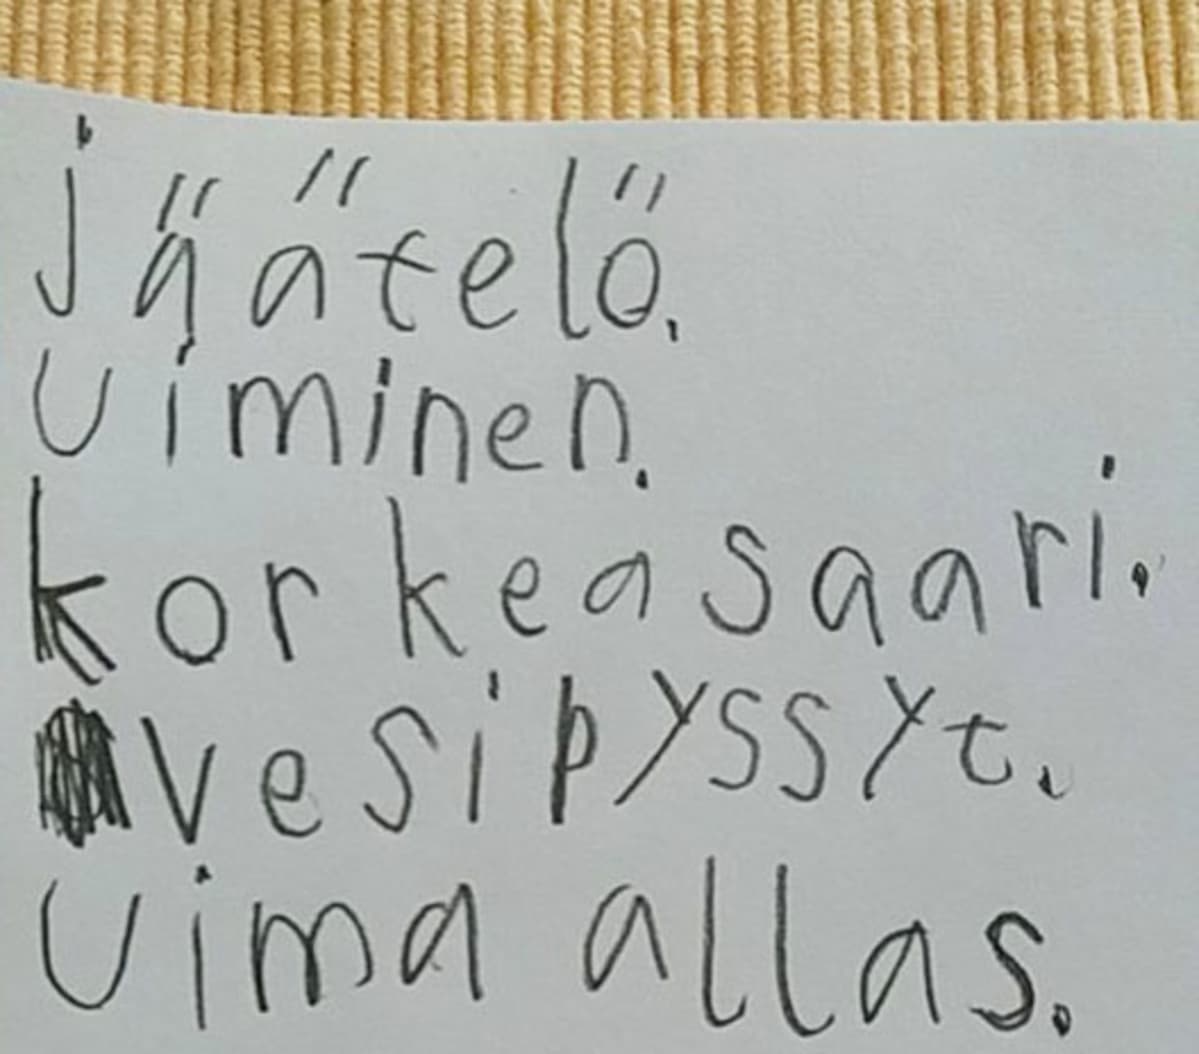 jäätelö.
Uiminen.
korkeasaari.
vesipyssyt.
Uima allas.